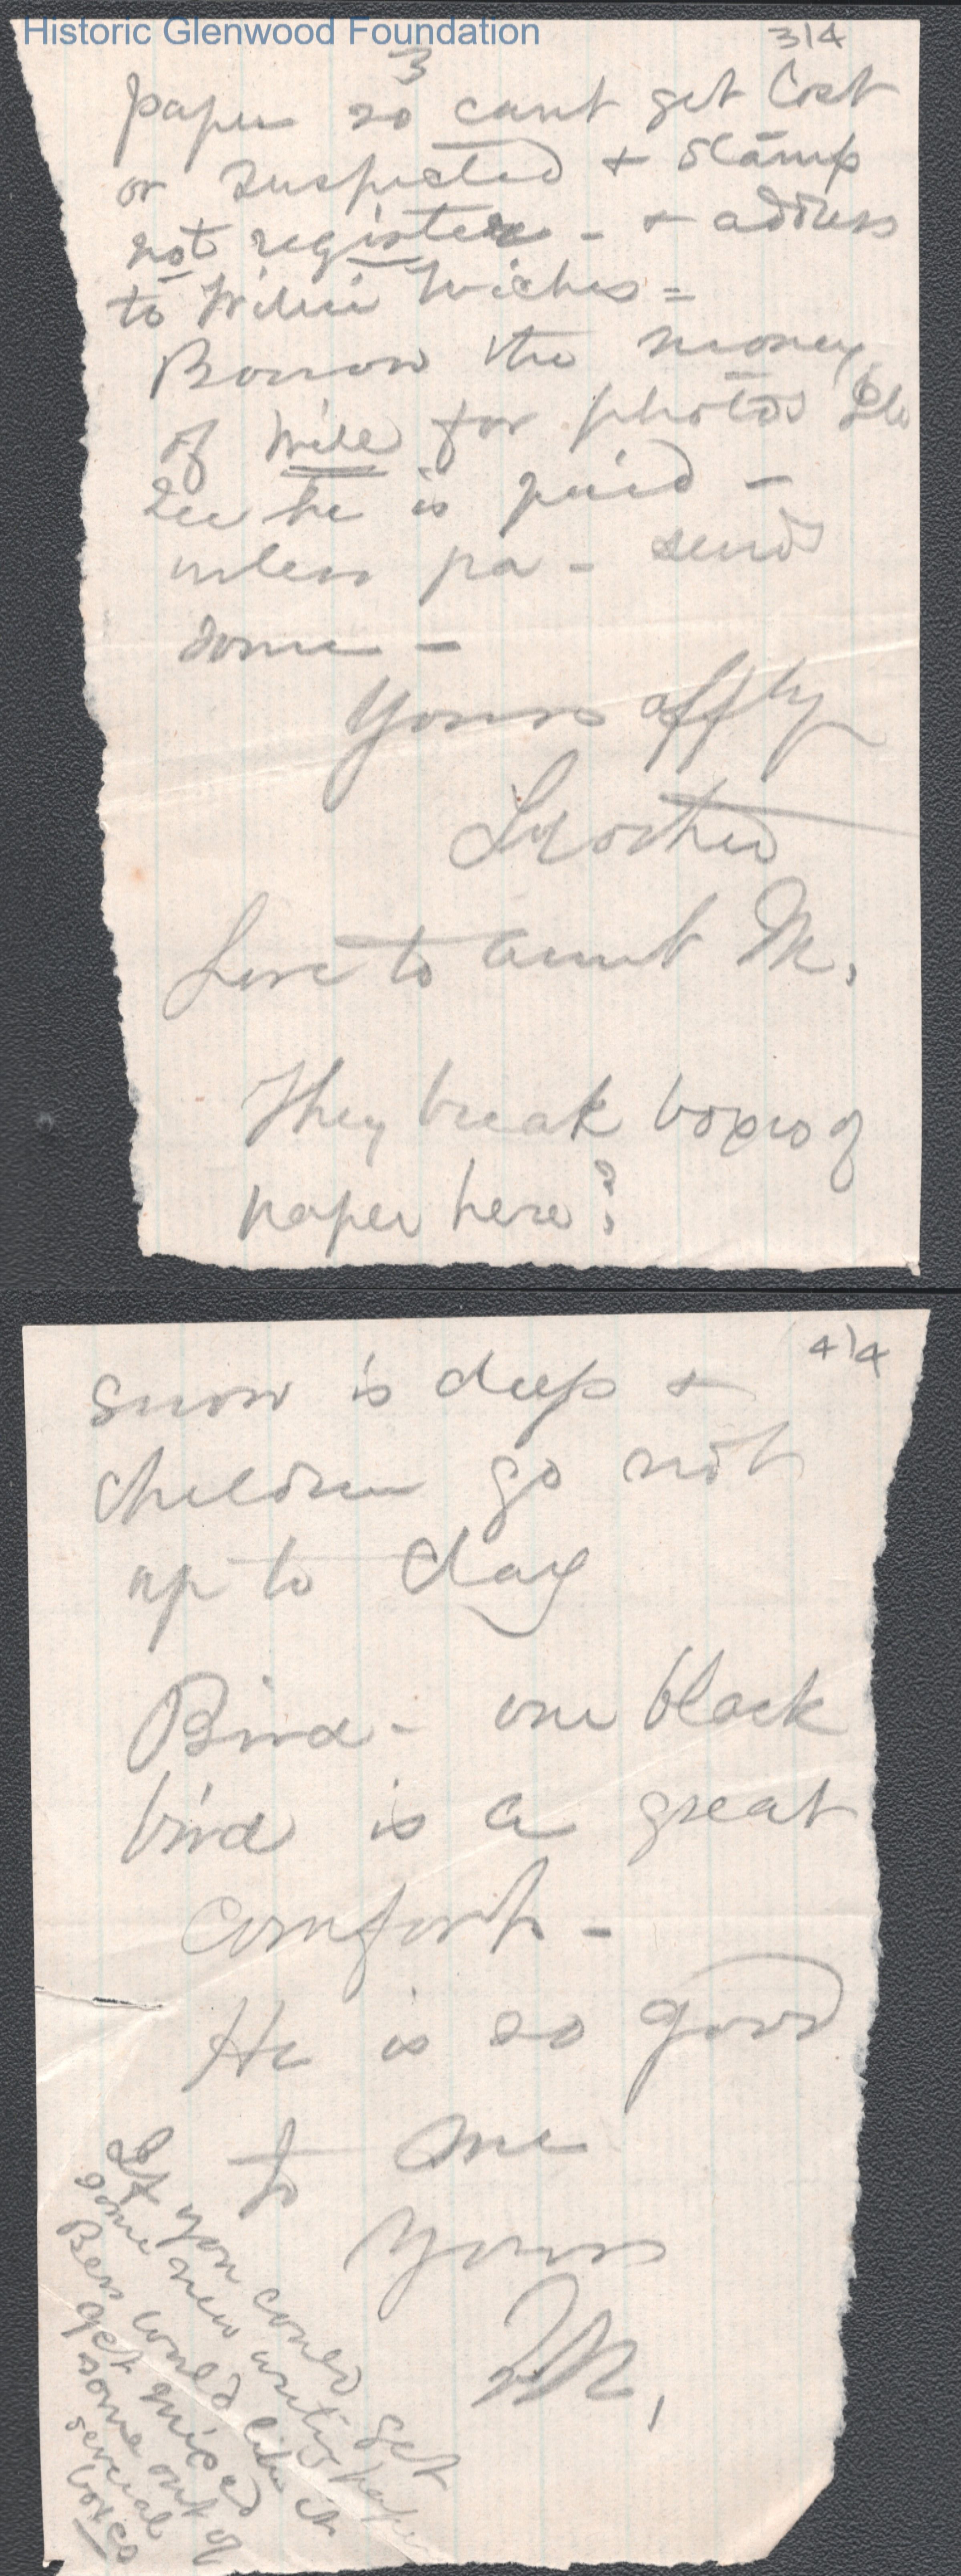 Historic Glenwood Foundation
3|4
3
paper so cant get lost
or suspected + stamp
not register - + address
to
Borrow the money
of Will for photos Ile
see he is paid -
unless pa - sends
some -
Yours affly
Love to aunt M.
They break boxes of
paper here?
4|4
Snow is deep +
Children go not
up to day
Bird - our black
bird is a great
comfort -
He is so good
to me
Yours
M.
If you could get
some new writing paper
Bess would like it
get mixed
some out of
several
boxes